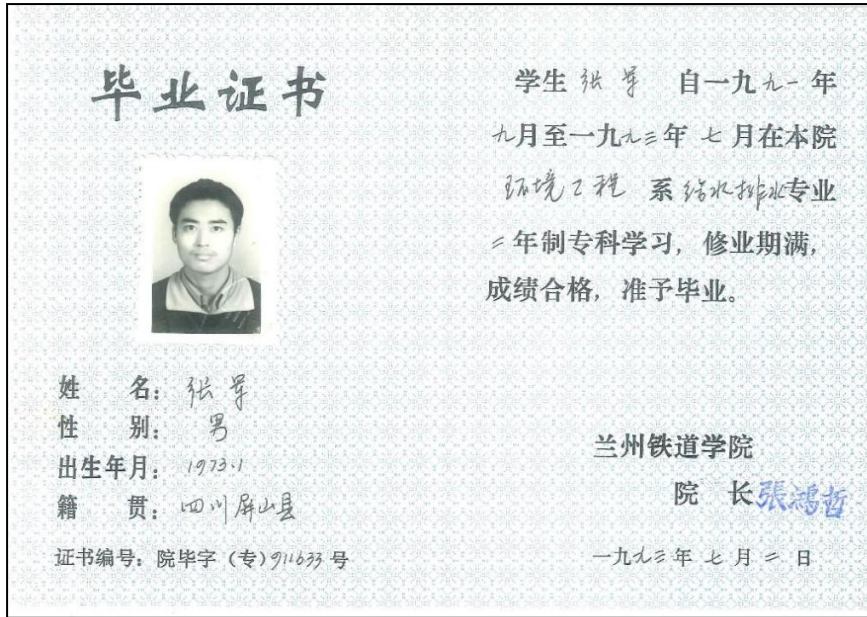 毕业证书
姓 名：张军
性 别：男
出生年月：1973.1
籍 贯：四川屏山县
证书编号：院毕字（专）911633号
学生 张军 自一九九一年
九月至一九九三年 七月在本院
环境工程 系给水排水专业
二年制专科学习，修业期满，
成绩合格，准予毕业。
兰州铁道学院
院 长 張鴻哲
一九九三年 七月 二日